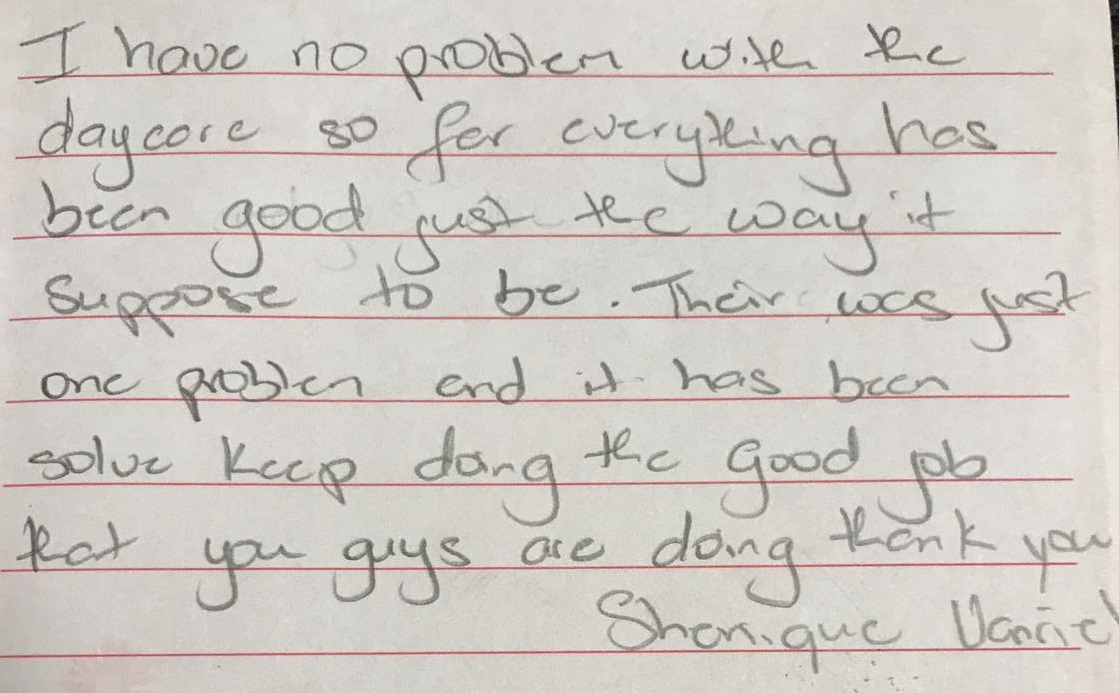 I have no problem with the
daycare so far everything has
been good just the way it
suppose to be. Their was just
one problem and it has been
solve Keep doing the good job
that you guys are doing thank you
Shenique